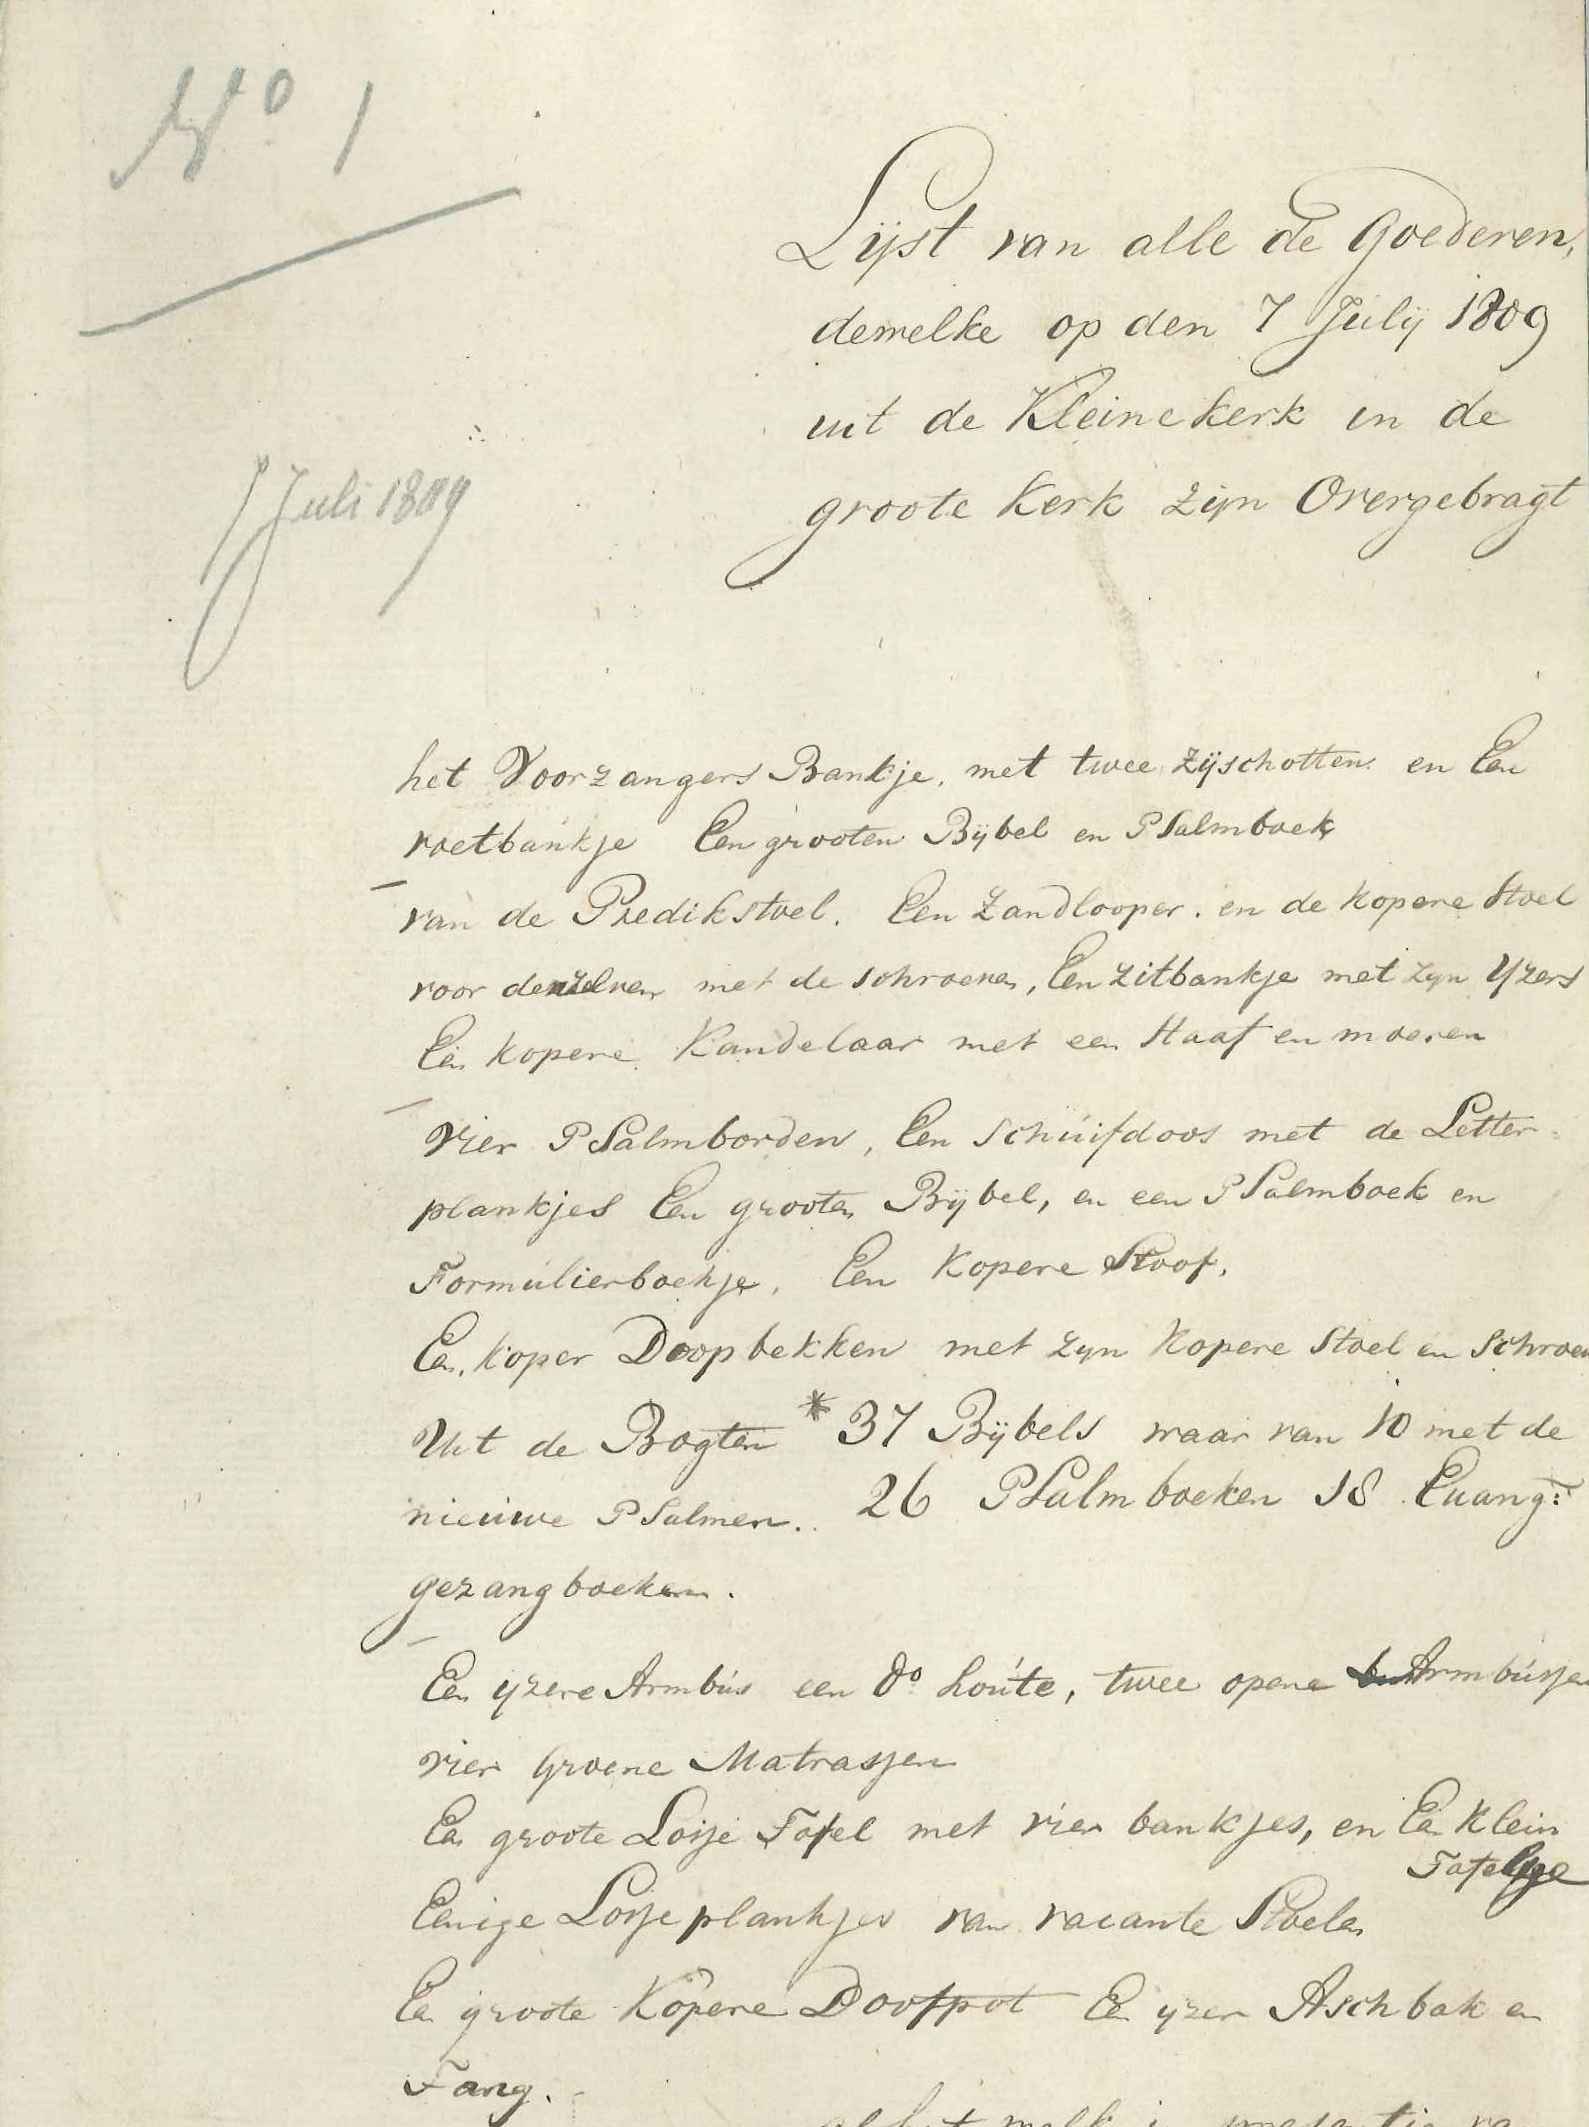 No 1
Lijst van alle de Goederen,
dewelke op den 7 Julij 1809
uit de Kleine kerk in de
groote Kerk zijn Overgebragt
7 Juli 1809
het Voorzangers Bankje, met twee zijschotten en Een
voetbankje Een grooten Bijbel en PSalmboek
van de Predikstoel. Een Zandlooper. en de kopere Stoel
voor denzelven met de schroeven, Een zitbankje met zyn Yzers
Een kopere Kandelaar met een Staaf en moeren
Vier PSalmborden, Een Schuifdoos met de Letter
plankjes Een grooten Bijbel, en een PSalmboek en
Formulierboekje, Een Kopere Stoof,
Een koper Doopbekken met zyn Kopere Stoel en Schroev
Uit de Bogten * 37 Bijbels waar van 10 met de
nieuwe PSalmen. 26 PSalm boeken 18 Euang:
gezangboeken.
Een yzere Armbus een do houte, twee opene Armbusjen
vier Groene Matrasjen
Een groote Losje Tafel met vier bankjes, en Een Klein
Tafeltje
Eenige Losje plankjes van vacante Stoelen
Een groote Kopere Doofpot Een yzer Aschbak en
Tang.